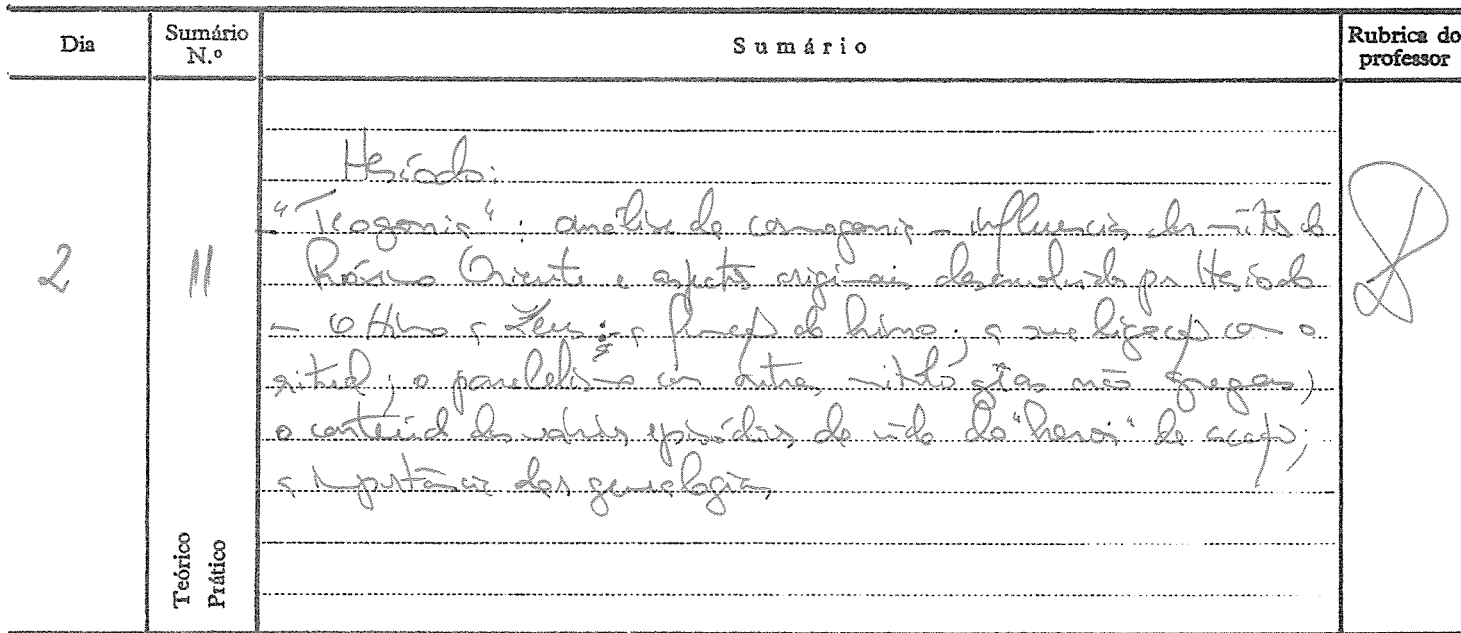 Dia
Sumário N.º
Sumário
Rubrica do professor
2
11
Hesíodo:
"Teogonia": análise da cosmogonia – influências dos mitos do
Próximo Oriente e aspectos originais desenvolvidos por Hesíodo
– O Hino a Zeus: a função do hino; a sua ligação com o
ritual; o paralelismo com outras mitologias não gregas;
o conteúdo dos vários episódios da vida do "herói" da acção;
a importância das genealogias
Teórico
Prático